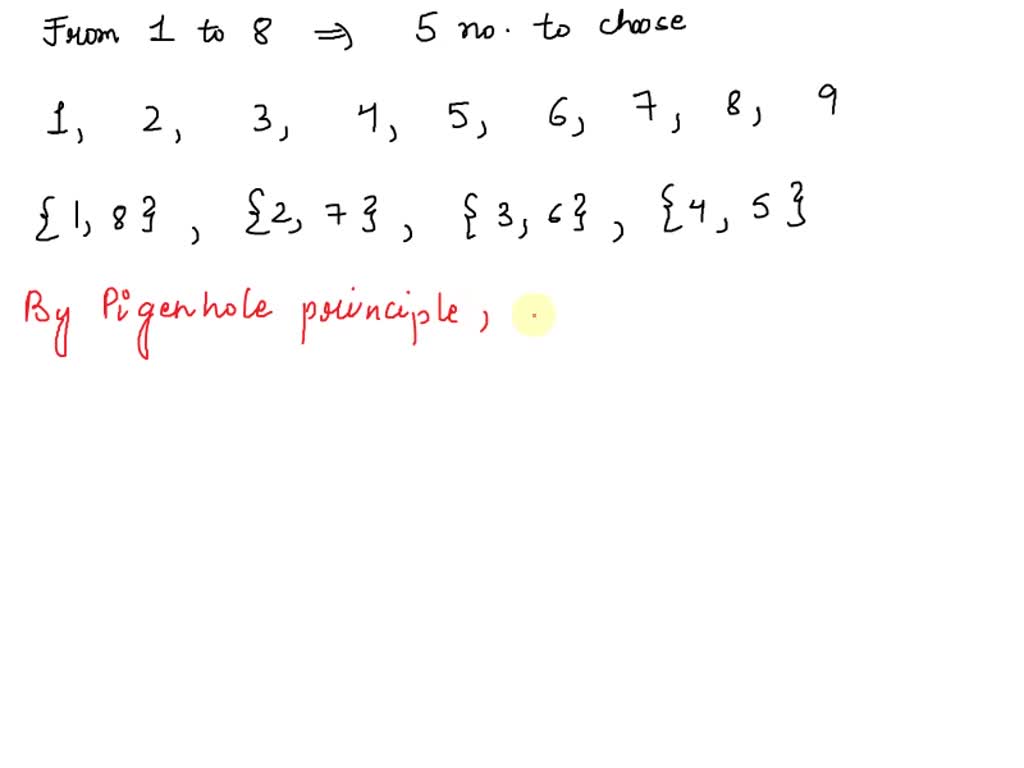 From 1 to 8 ⇒ 5 no. to choose
1, 2, 3, 4, 5, 6, 7, 8, 9
{1, 8}, {2, 7}, {3, 6}, {4, 5}
By Pigenhole principle,